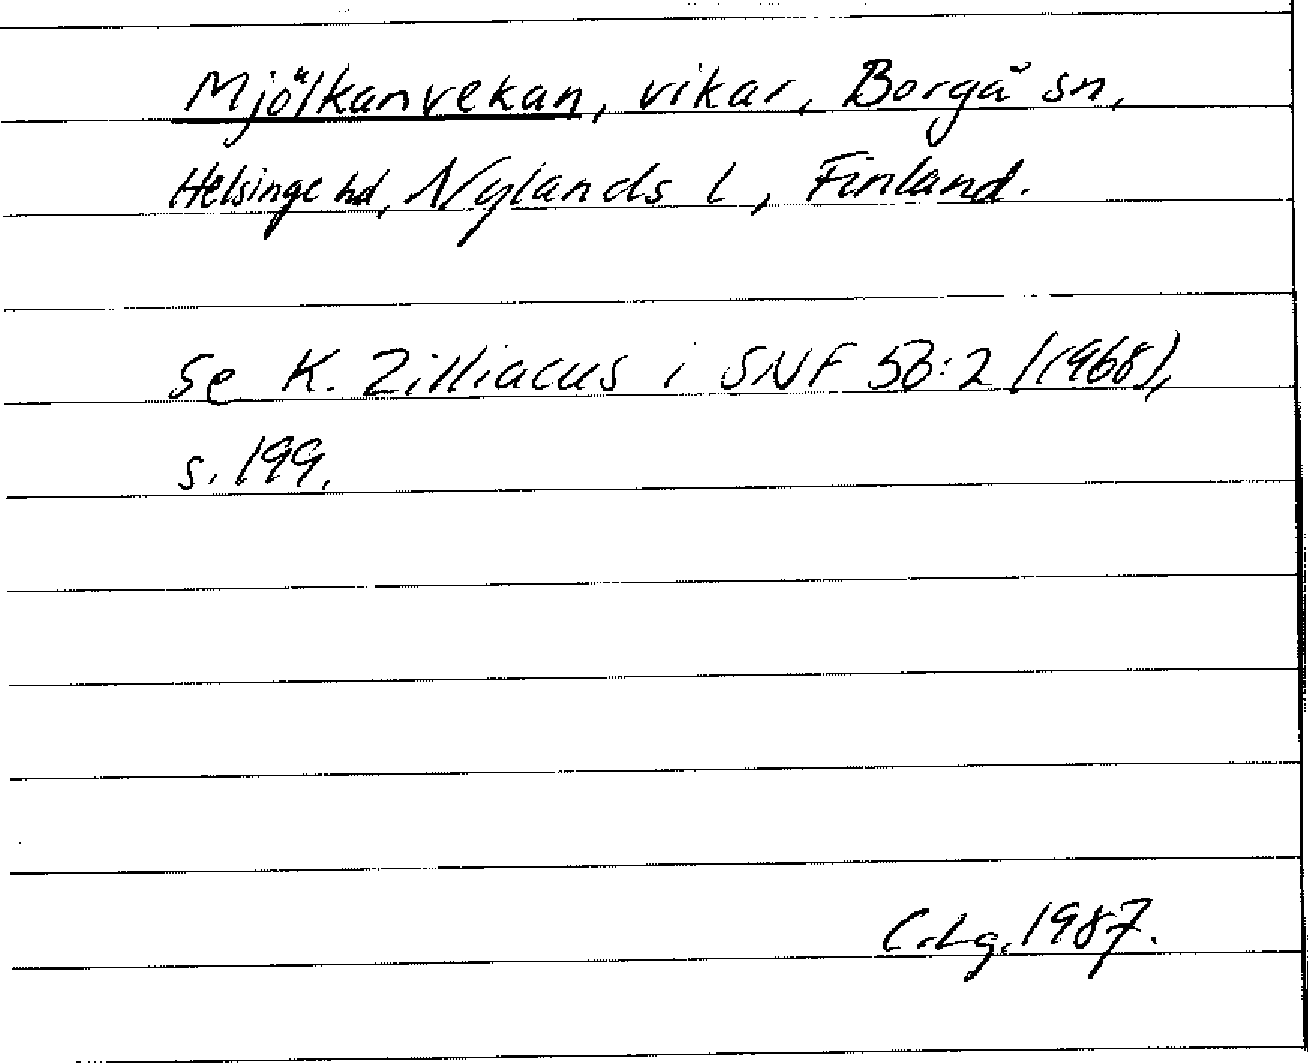 Mjölkanvekan, vikar, Borgå sn,
Helsinge hd, Nylands l, Finland.
Se K. Zilliacus i SNF 58:2 (1968),
s. 199.
C.Lg. 1987.